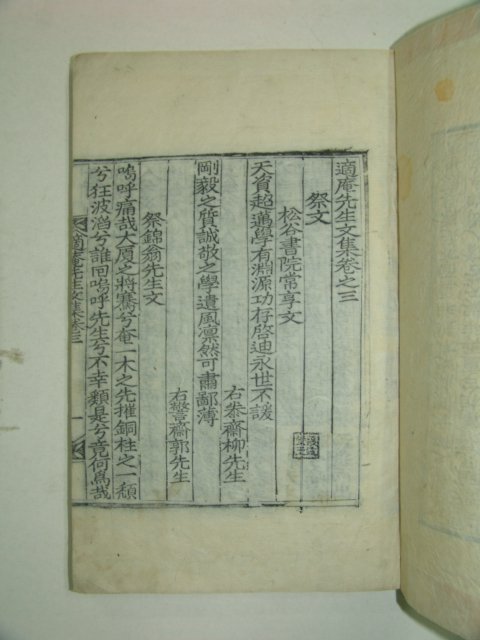 適庵先生文集卷之三
祭文
松谷書院常享文
天資超邁學有淵源功存啓迪永世不諼
右泰齋柳先生
剛毅之質誠敬之學遺風凛然可肅鄙薄
右警齋郭先生
祭錦翁先生文
嗚呼痛哉大厦之將騫兮奄一木之先摧銅柱之一頹
兮狂波滔兮誰回嗚呼先生兮不幸類是兮竟何爲哉
適庵先生文集卷三
一